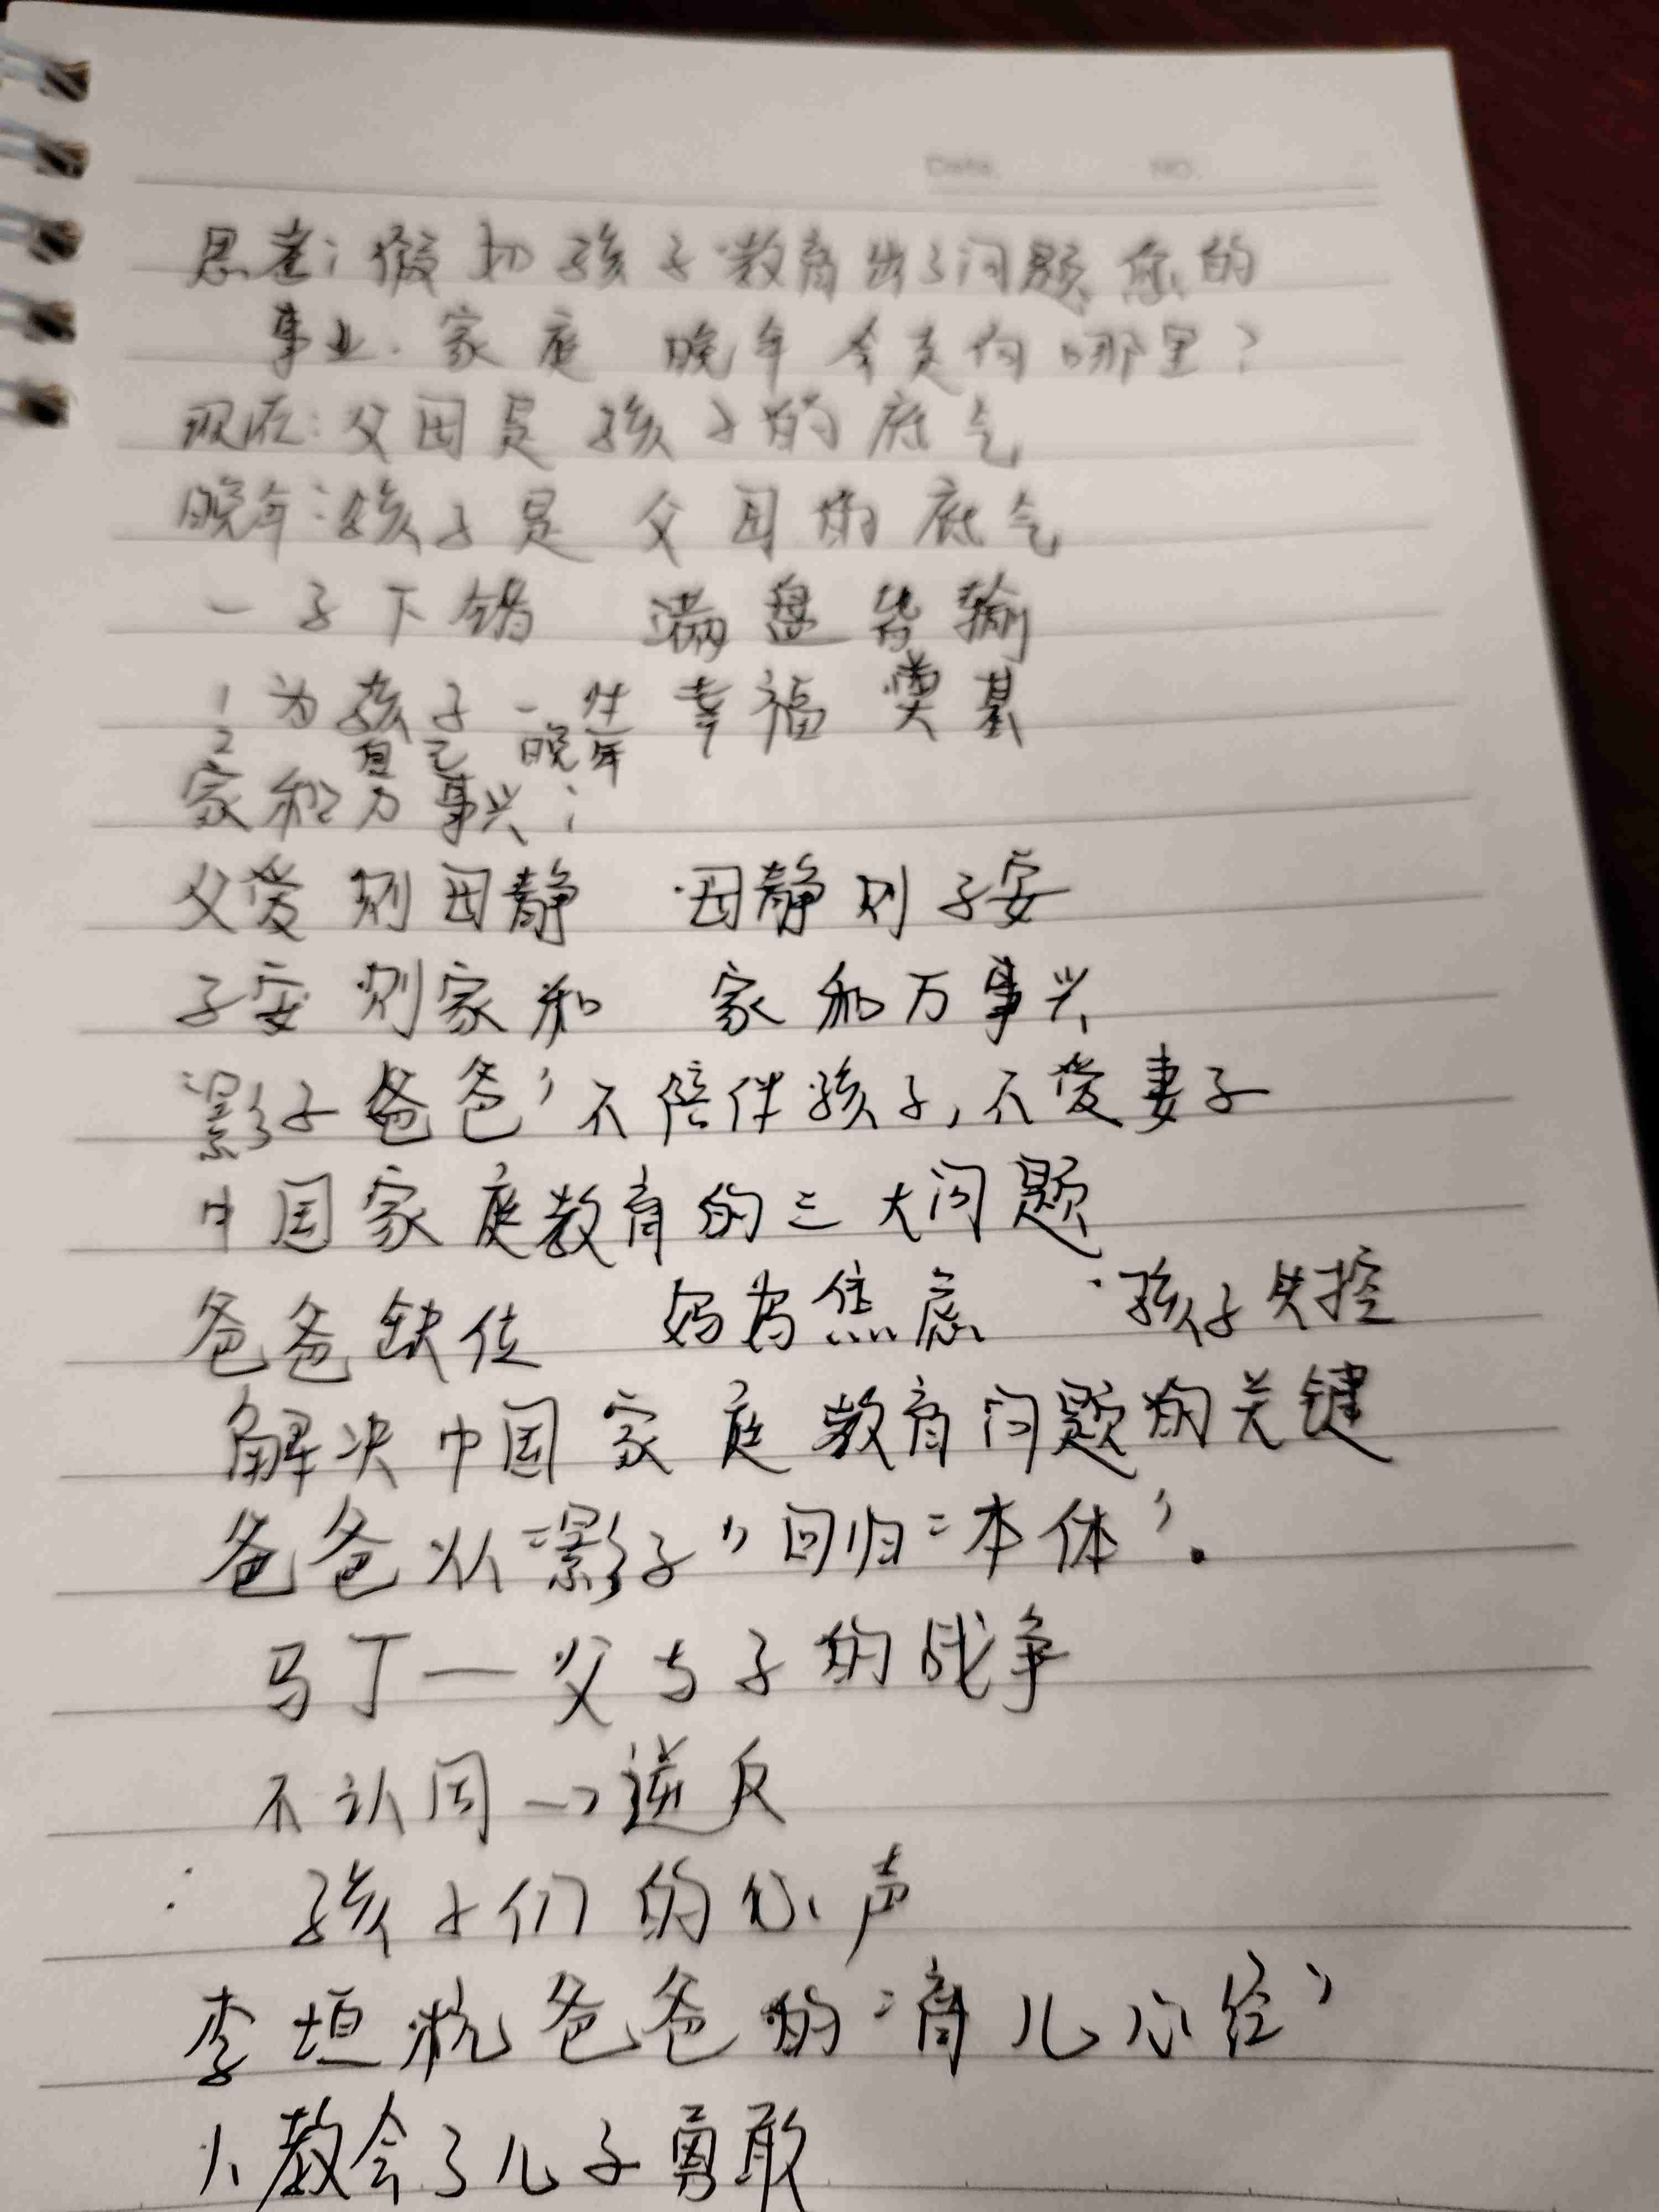 Date. NO.
思考：假如孩子教育出了问题，您的
事业、家庭 晚年会走向哪里？
现在：父母是孩子的底气
晚年：孩子是父母的底气
一子下错 满盘皆输
1 为孩子一生幸福奠基
2 自己 晚年
家和万事兴：
父爱则母静 母静则子安
子安则家和 家和万事兴
"影子爸爸"不陪伴孩子，不爱妻子
中国家庭教育的三大问题
爸爸缺位 妈妈焦虑 孩子失控
解决中国家庭教育问题的关键
爸爸从"影子"回归"本体"。
马丁一父与子的战争
不认同→逆反
孩子们的心声
李垣杭爸爸的"育儿心经"
1、教会了儿子勇敢